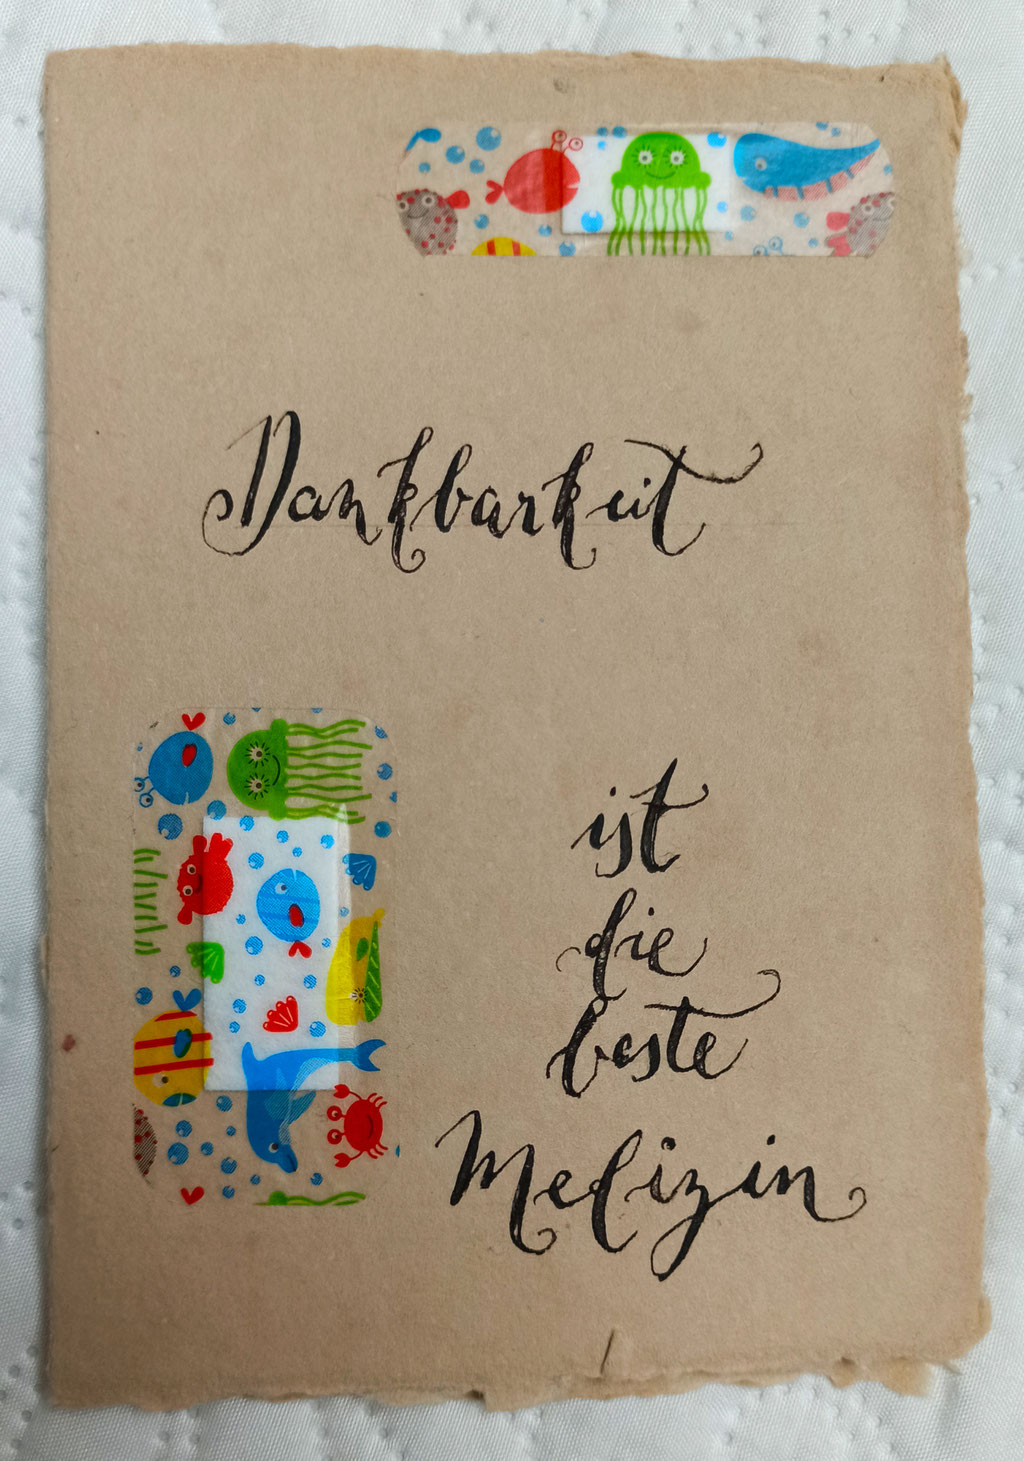 Dankbarkeit
ist
die
beste
Medizin